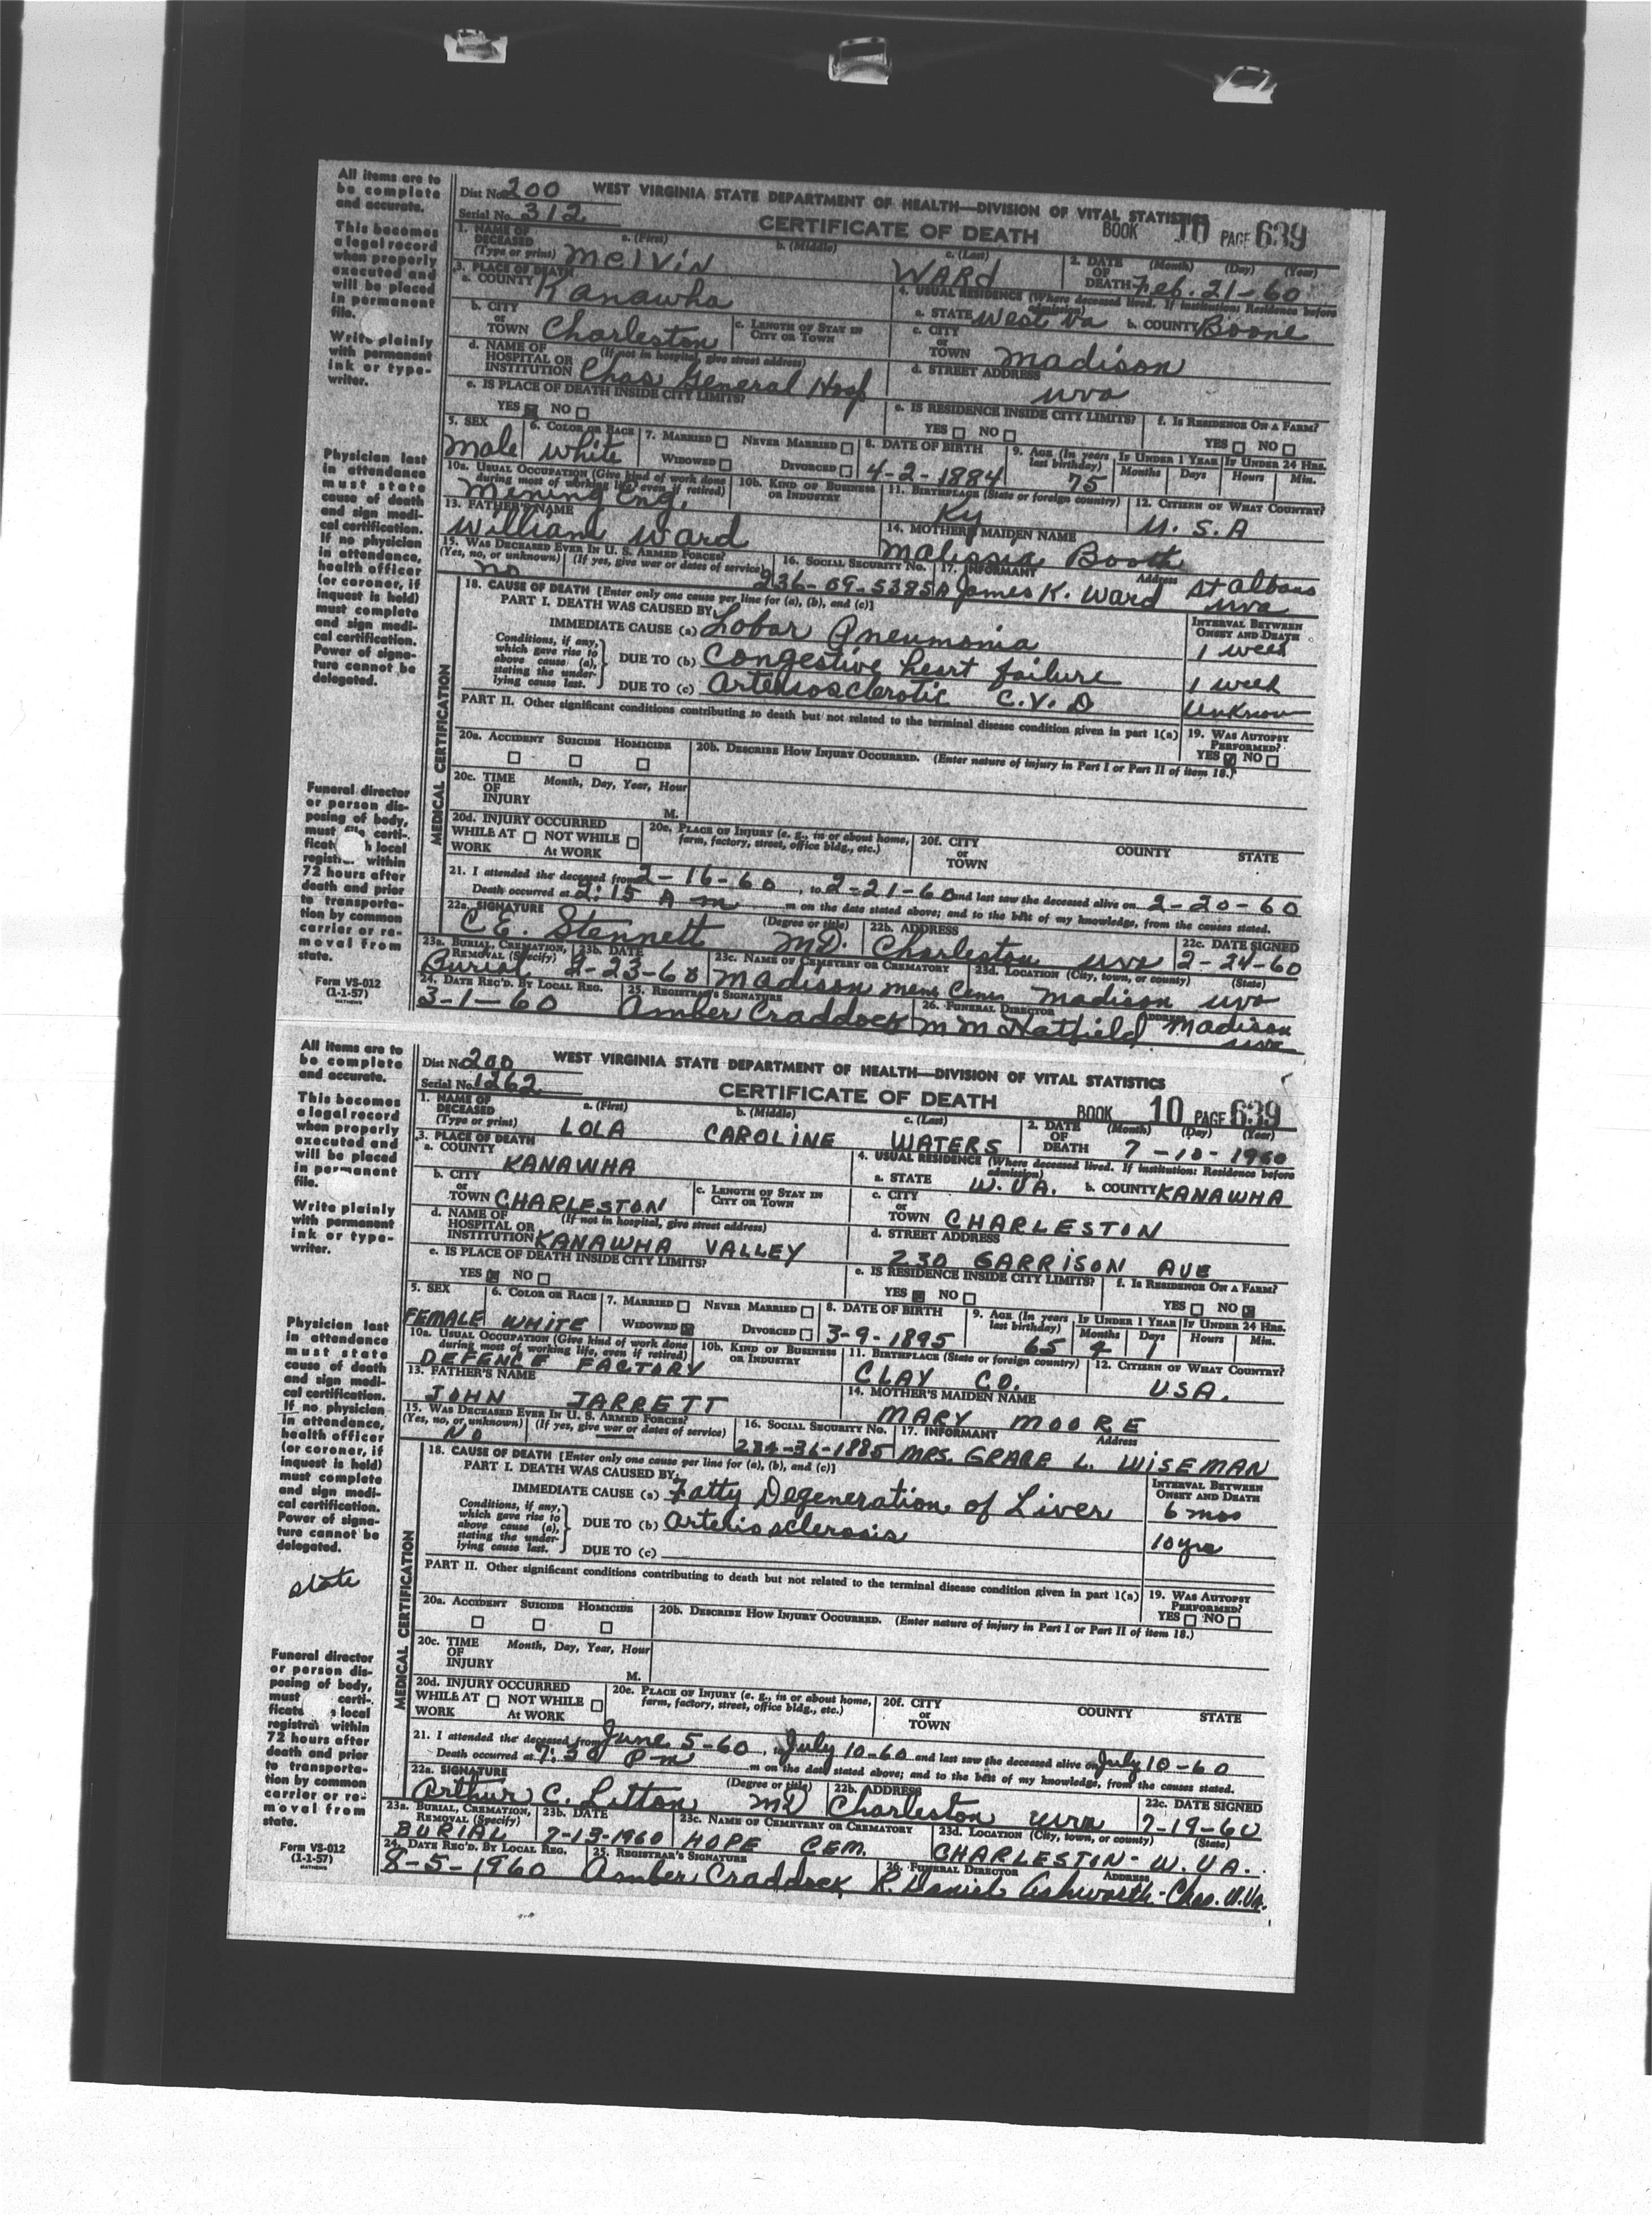 All items are to
be complete
and accurate.
This becomes
a legal record
when properly
executed and
will be placed
in permanent
file.
Write plainly
with permanent
ink or type-
writer.
Physician last
in attendance
must state
cause of death
and sign medi-
cal certification.
If no physician
in attendance,
health officer
(or coroner, if
inquest is held)
must complete
and sign medi-
cal certification.
Power of signa-
ture cannot be
delegated.
Funeral director
or person dis-
posing of body,
must certi-
ficate local
within
72 hours after
death and prior
to transporta-
tion by common
carrier or re-
moval from
state.
Form VS-012
(1-1-57)
Dist No. 200 WEST VIRGINIA STATE DEPARTMENT OF HEALTH—DIVISION OF VITAL STATISTICS
Serial No. 312 CERTIFICATE OF DEATH BOOK 10 PAGE 639
1. NAME OF DECEASED (Type or print) a. (First) Melvin b. (Middle) c. (Last) Ward 2. DATE OF DEATH (Month) (Day) (Year) Feb. 21-60
3. PLACE OF DEATH a. COUNTY Kanawha 4. USUAL RESIDENCE (Where deceased lived. If institution: Residence before admission) a. STATE West Va b. COUNTY Boone
b. CITY or TOWN Charleston c. LENGTH OF STAY IN CITY OR TOWN c. CITY or TOWN Madison
d. NAME OF HOSPITAL OR INSTITUTION (If not in hospital, give street address) Chas General Hosp d. STREET ADDRESS wva
e. IS PLACE OF DEATH INSIDE CITY LIMITS? YES NO e. IS RESIDENCE INSIDE CITY LIMITS? YES NO f. IS RESIDENCE ON A FARM? YES NO
5. SEX male 6. COLOR OR RACE white 7. MARRIED NEVER MARRIED WIDOWED DIVORCED 8. DATE OF BIRTH 4-2-1884 9. AGE (In years last birthday) 75 IF UNDER 1 YEAR Months Days IF UNDER 24 HRS. Hours Min.
10a. USUAL OCCUPATION (Give kind of work done during most of working life, even if retired) Mening Eng. 10b. KIND OF BUSINESS OR INDUSTRY 11. BIRTHPLACE (State or foreign country) Ky 12. CITIZEN OF WHAT COUNTRY? U.S.A
13. FATHER'S NAME William Ward 14. MOTHER'S MAIDEN NAME Malissia Booth
15. WAS DECEASED EVER IN U. S. ARMED FORCES? (Yes, no, or unknown) (If yes, give war or dates of service) no 16. SOCIAL SECURITY NO. 236-09-5385A 17. INFORMANT James K. Ward Address St Albans wva
18. CAUSE OF DEATH [Enter only one cause per line for (a), (b), and (c)]
PART I. DEATH WAS CAUSED BY: INTERVAL BETWEEN ONSET AND DEATH
IMMEDIATE CAUSE (a) Lobar Pneumonia 1 week
Conditions, if any, which gave rise to above cause (a), stating the underlying cause last. DUE TO (b) Congestive heart failure 1 week
DUE TO (c) Arteriosclerotic C.V.D Unknow
PART II. Other significant conditions contributing to death but not related to the terminal disease condition given in part 1(a) 19. WAS AUTOPSY PERFORMED? YES NO
20a. ACCIDENT SUICIDE HOMICIDE 20b. DESCRIBE HOW INJURY OCCURRED. (Enter nature of injury in Part I or Part II of item 18.)
20c. TIME OF INJURY Month, Day, Year, Hour M.
20d. INJURY OCCURRED WHILE AT WORK NOT WHILE AT WORK 20e. PLACE OF INJURY (e. g., in or about home, farm, factory, street, office bldg., etc.) 20f. CITY or TOWN COUNTY STATE
MEDICAL CERTIFICATION
21. I attended the deceased from 2-16-60, to 2-21-60 and last saw the deceased alive on 2-20-60
Death occurred at 2:15 A m m on the date stated above; and to the best of my knowledge, from the causes stated.
22a. SIGNATURE C.E. Stennett (Degree or title) MD. 22b. ADDRESS Charleston wva 22c. DATE SIGNED 2-24-60
23a. BURIAL, CREMATION, REMOVAL (Specify) Burial 23b. DATE 2-23-60 23c. NAME OF CEMETERY OR CREMATORY Madison mem Cem 23d. LOCATION (City, town, or county) (State) Madison wva
24. DATE REC'D. BY LOCAL REG. 3-1-60 25. REGISTRAR'S SIGNATURE Amber Craddock 26. FUNERAL DIRECTOR M M Hatfield ADDRESS Madison wva
All items are to
be complete
and accurate.
This becomes
a legal record
when properly
executed and
will be placed
in permanent
file.
Write plainly
with permanent
ink or type-
writer.
Physician last
in attendance
must state
cause of death
and sign medi-
cal certification.
If no physician
in attendance,
health officer
(or coroner, if
inquest is held)
must complete
and sign medi-
cal certification.
Power of signa-
ture cannot be
delegated.
state
Funeral director
or person dis-
posing of body,
must certi-
ficate local
registrar within
72 hours after
death and prior
to transporta-
tion by common
carrier or re-
moval from
state.
Form VS-012
(1-1-57)
Dist No. 200 WEST VIRGINIA STATE DEPARTMENT OF HEALTH—DIVISION OF VITAL STATISTICS
Serial No. 1262 CERTIFICATE OF DEATH BOOK 10 PAGE 639
1. NAME OF DECEASED (Type or print) a. (First) LOLA b. (Middle) CAROLINE c. (Last) WATERS 2. DATE OF DEATH (Month) (Day) (Year) 7-10-1960
3. PLACE OF DEATH a. COUNTY KANAWHA 4. USUAL RESIDENCE (Where deceased lived. If institution: Residence before admission) a. STATE W. VA. b. COUNTY KANAWHA
b. CITY or TOWN CHARLESTON c. LENGTH OF STAY IN CITY OR TOWN c. CITY or TOWN CHARLESTON
d. NAME OF HOSPITAL OR INSTITUTION (If not in hospital, give street address) KANAWHA VALLEY d. STREET ADDRESS 230 GARRISON AVE
e. IS PLACE OF DEATH INSIDE CITY LIMITS? YES NO e. IS RESIDENCE INSIDE CITY LIMITS? YES NO f. IS RESIDENCE ON A FARM? YES NO
5. SEX FEMALE 6. COLOR OR RACE WHITE 7. MARRIED NEVER MARRIED WIDOWED DIVORCED 8. DATE OF BIRTH 3-9-1895 9. AGE (In years last birthday) 65 IF UNDER 1 YEAR Months 4 Days 1 IF UNDER 24 HRS. Hours Min.
10a. USUAL OCCUPATION (Give kind of work done during most of working life, even if retired) DEFENCE FACTORY 10b. KIND OF BUSINESS OR INDUSTRY 11. BIRTHPLACE (State or foreign country) CLAY CO. 12. CITIZEN OF WHAT COUNTRY? USA.
13. FATHER'S NAME JOHN JARRETT 14. MOTHER'S MAIDEN NAME MARY MOORE
15. WAS DECEASED EVER IN U. S. ARMED FORCES? (Yes, no, or unknown) (If yes, give war or dates of service) NO 16. SOCIAL SECURITY NO. 234-36-1885 17. INFORMANT Address MRS. GRACE L. WISEMAN
18. CAUSE OF DEATH [Enter only one cause per line for (a), (b), and (c)]
PART I. DEATH WAS CAUSED BY: INTERVAL BETWEEN ONSET AND DEATH
IMMEDIATE CAUSE (a) Fatty Degeneration of Liver 6 mos
Conditions, if any, which gave rise to above cause (a), stating the underlying cause last. DUE TO (b) Arteriosclerosis 10 yrs
DUE TO (c)
PART II. Other significant conditions contributing to death but not related to the terminal disease condition given in part 1(a) 19. WAS AUTOPSY PERFORMED? YES NO
20a. ACCIDENT SUICIDE HOMICIDE 20b. DESCRIBE HOW INJURY OCCURRED. (Enter nature of injury in Part I or Part II of item 18.)
20c. TIME OF INJURY Month, Day, Year, Hour M.
20d. INJURY OCCURRED WHILE AT WORK NOT WHILE AT WORK 20e. PLACE OF INJURY (e. g., in or about home, farm, factory, street, office bldg., etc.) 20f. CITY or TOWN COUNTY STATE
MEDICAL CERTIFICATION
21. I attended the deceased from June 5-60, to July 10-60 and last saw the deceased alive on July 10-60
Death occurred at 7:30 P m m on the date stated above; and to the best of my knowledge, from the causes stated.
22a. SIGNATURE Arthur C. Litton (Degree or title) MD 22b. ADDRESS Charleston wva 22c. DATE SIGNED 7-19-60
23a. BURIAL, CREMATION, REMOVAL (Specify) BURIAL 23b. DATE 7-13-1960 23c. NAME OF CEMETERY OR CREMATORY HOPE CEM. 23d. LOCATION (City, town, or county) (State) CHARLESTON- W. VA.
24. DATE REC'D. BY LOCAL REG. 8-5-1960 25. REGISTRAR'S SIGNATURE Amber Craddock 26. FUNERAL DIRECTOR ADDRESS R. Daniel Ashworth - Chas. W.Va.